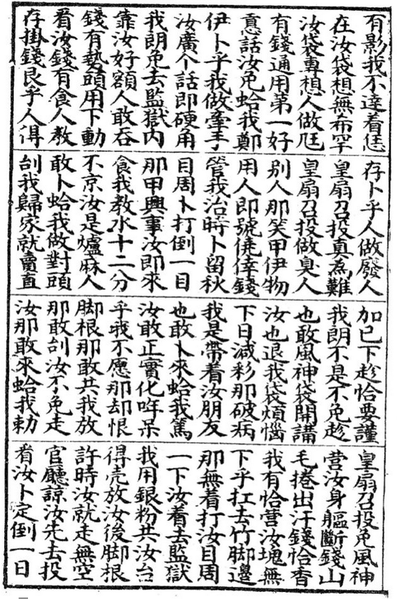 有影我不達着恁
在汝袋想無希罕
汝袋專想人做尫
有錢通用第一好
意話汝免蛤我鄭
伊卜乎我做牽手
汝廣个話即硬角
我朗免去監獄內
靠汝好額人敢吞
錢有勢頭用下動
看汝錢有食人教
存掛錢艮乎人俱
存卜乎人做廢人
皇扇召投真為難
皇扇召投做臭人
別人那笑甲伊物
用人即號僥倖錢
管我治時卜留秋
目周卜打倒一目
那甲興事汝即來
食我教水十二分
不京汝是爐麻人
敢卜蛤我做對頭
刣我歸家就賣直
加巳下趁恰要謹
我朗不是不免趁
也敢風神袋開講
汝也退我袋煩惱
下日減彩那破病
我是帶着汝朋友
也敢卜來蛤我罵
汝敢正實化咩呆
乎我不應那却恨
脚根那敢共我放
那敢刣汝不免走
汝那敢來蛤我勅
皇扇召投免風神
营汝身軀斷錢山
毛捲出汗錢恰香
我有恰营汝塊無
下乎扛去竹脚邊
那無着打汝目周
一下汝着去監獄
我用銀粉共汝台
得壳放汝後脚根
許時汝就走無空
官廳諒汝先去投
看汝卜定倒一目